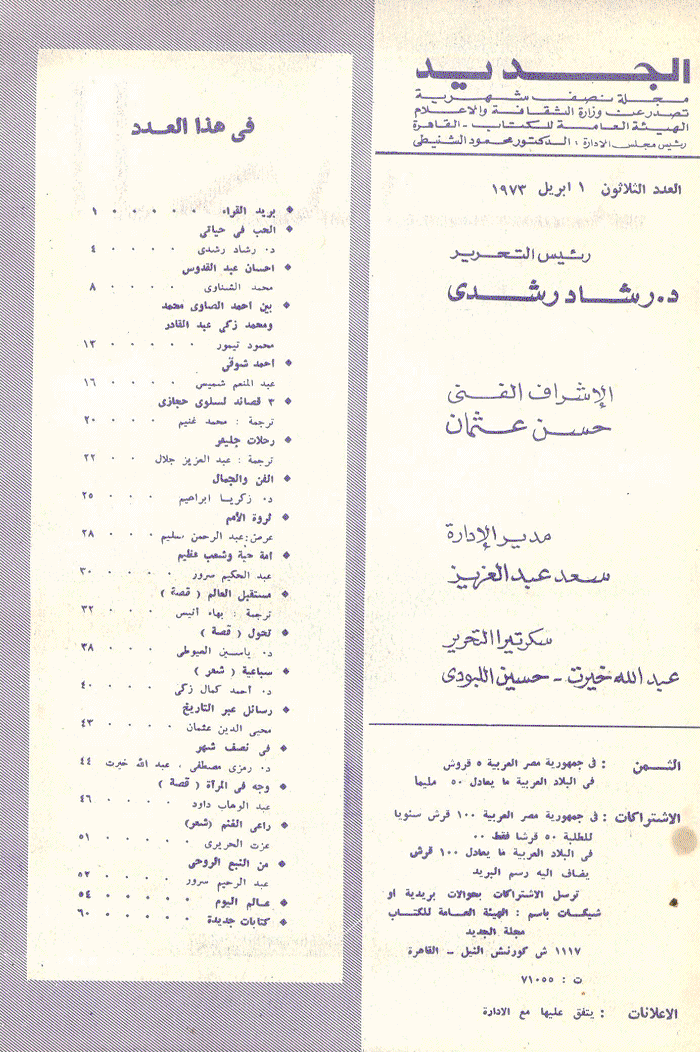 الجديد
مجلة نصف شهرية
تصدر عن وزارة الثقافة والاعلام
الهيئة العامة للكتاب - القاهرة
رئيس مجلس الادارة : الدكتور محمود الشنيطى
العدد الثلاثون ١ ابريل ١٩٧٣
رئيس التحرير
د. رشاد رشدى
الإشراف الفنى
حسن عثمان
مدير الإدارة
سعد عبد العزيز
سكرتيرا التحرير
عبد الله خيرت - حسين اللبودى
الثمن : فى جمهورية مصر العربية ٥ قروش
فى البلاد العربية ما يعادل ٥٠ مليما
الاشتراكات : فى جمهورية مصر العربية ١٠٠ قرش سنويا
للطلبة ٥٠ قرشا فقط ٠٠
فى البلاد العربية ما يعادل ١٠٠ قرش
يضاف اليه رسم البريد
ترسل الاشتراكات بحوالات بريدية او
شيكات باسم : الهيئة العامة للكتاب
مجلة الجديد
١١١٧ ش كورنش النيل - القاهرة
ت : ٧١٠٥٥
الاعلانات : يتفق عليها مع الادارة
فى هذا العدد
بريد القراء ٠ ٠ ٠ ٠ ٠ ١
الحب فى حياتى
د٠ رشاد رشدى ٠ ٠ ٠ ٠ ٤
احسان عبد القدوس
محمد الشناوى ٠ ٠ ٠ ٠ ٨
بين احمد الصاوى محمد
ومحمد زكى عبد القادر
محمود تيمور ٠ ٠ ٠ ٠ ٠ ١٢
احمد شوقى
عبد المنعم شميس ٠ ٠ ٠ ٠ ١٦
٣ قصائد لسلوى حجازى
ترجمة : محمد غنيم ٠ ٠ ٠ ٢٠
رحلات جليفر
ترجمة : عبد العزيز جلال ٠ ٠ ٢٢
الفن والجمال
د٠ زكريا ابراهيم ٠ ٠ ٠ ٢٥
ثروة الأمم
عرض : عبد الرحمن سليم ٠ ٠ ٠ ٢٨
امة حية وشعب عظيم
عبد الحكيم سرور ٠ ٠ ٠ ٠ ٣٠
مستقبل العالم ( قصة )
ترجمة : بهاء أنيس ٠ ٠ ٠ ٣٢
تحول ( قصة )
د٠ ياسين العيوطى ٠ ٠ ٠ ٣٨
سباعية ( شعر )
د٠ أحمد كمال زكى ٠ ٠ ٠ ٤٠
رسائل عبر التاريخ
محيى الدين عثمان ٠ ٠ ٠ ٠ ٤٣
فى نصف شهر
د٠ رمزى مصطفى ، عبد الله خيرت ٤٤
وجه فى المرآة ( قصة )
عبد الوهاب داود ٠ ٠ ٠ ٠ ٤٦
راعى الغنم (شعر)
عزت الحريرى ٠ ٠ ٠ ٠ ٠ ٥١
من النبع الروحى
عبد الرحيم سرور ٠ ٠ ٠ ٠ ٥٢
عالم اليوم ٠ ٠ ٠ ٠ ٠ ٥٤
كتابات جديدة ٠ ٠ ٠ ٠ ٦٠